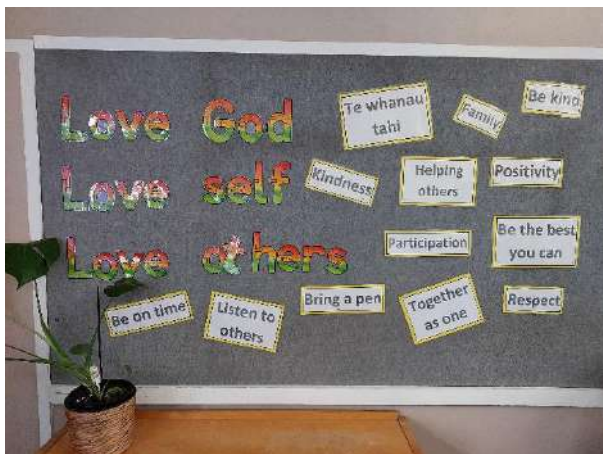 Love God
Love self
Love others
Te whanau
tahi
Family
Be kind
Kindness
Helping
others
Positivity
Participation
Be the best
you can
Be on time
Listen to
others
Bring a pen
Together
as one
Respect